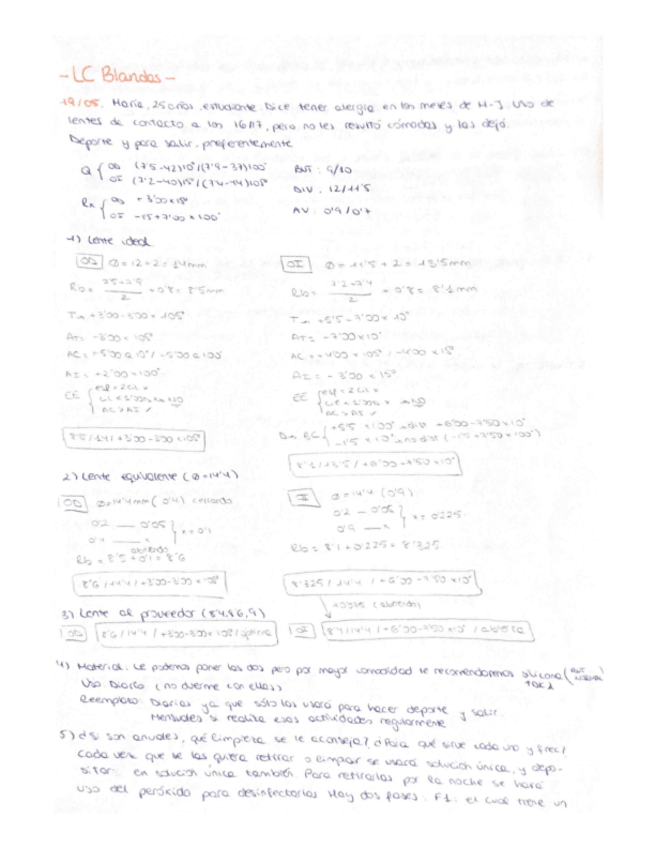 - LC Blandas -
19/05. María, 25 años, estudiante. Dice tener alergia en los meses de M-J. Uso de
lentes de contacto a los 16/17, pero no les resultó cómodas y las dejó.
Deporte y para salir, preferentemente
Q { OD (7'5-42)10°/(7'9-37)100° BUT: 9/10
OI (7'2-40)15°/(7'4-44)105° DIV: 12/11'5
Rx { OD +3'00x15° AV: 0'9/0'7
OI -1'5+7'00x100°
1) Lente ideal
OD Ø = 12+2 = 14mm
Rb = 7'5+7'9 / 2 + 0'8 = 8'5mm
Tm +3'00-3'00 x 105°
AT = -3'00 x 105°
AC = -5'00 a 10° / -5'00 a 100°
AI = +2'00 x 100°
EE { esf = 2cil x
AC > AI ✓
8'5/14/+3'00-3'00 x 105°
OI Ø = 11'5 + 2 = 13'5mm
Rb = 7'2+7'4 / 2 + 0'8 = 8'1mm
Tm +5'5-7'00 x 10°
AT = -7'00x10°
AC = -4'00 x 105° / -4'00 x 15°
AI = -3'00 x 15°
EE { esf = 2cil x
AC > AI ✓
8'1/13'5/+6'00-7'50 x10°
2) Lente equivalente (Ø=14'4)
OD Ø=14'4mm (0'4) cerrando
0'2 — 0'05 } x = 0'1
0'4 — x
abriendo
Rb = 8'5+0'1 = 8'6
8'6/14'4/+3'00-3'00 x 105°
OI Ø = 14'4 (0'9)
0'2 — 0'05 } x = 0'225
0'9 — x
Rb = 8'1+0'225 = 8'325
8'325/14'4/+6'00-7'50 x10°
3) Lente al proveedor (8'4, 8'6, 9)
OD 8'6/14'4/+3'00-3'00x105°/óptima
OI 8'4/14'4/+6'00-7'50x10°/abierta
4) Material: Le podemos poner las dos pero por mayor comodidad le recomendaremos silicona (BUT
Uso: Diario (no duerme con ellas)
Reemplazo: Diarias ya que sólo las usará para hacer deporte y salir.
Mensuales si realiza esas actividades regularmente
5) ¿Si son anuales, qué limpieza se le aconseja?, ¿Para qué sirve cada uno y frec?
Cada vez que se las quiera retirar o limpiar se usará solución única, y depo-
sitar en solución única también. Para retirarlas por la noche se hará
uso del peróxido para desinfectarlas. Hay dos fases: F1: el cual tiene un